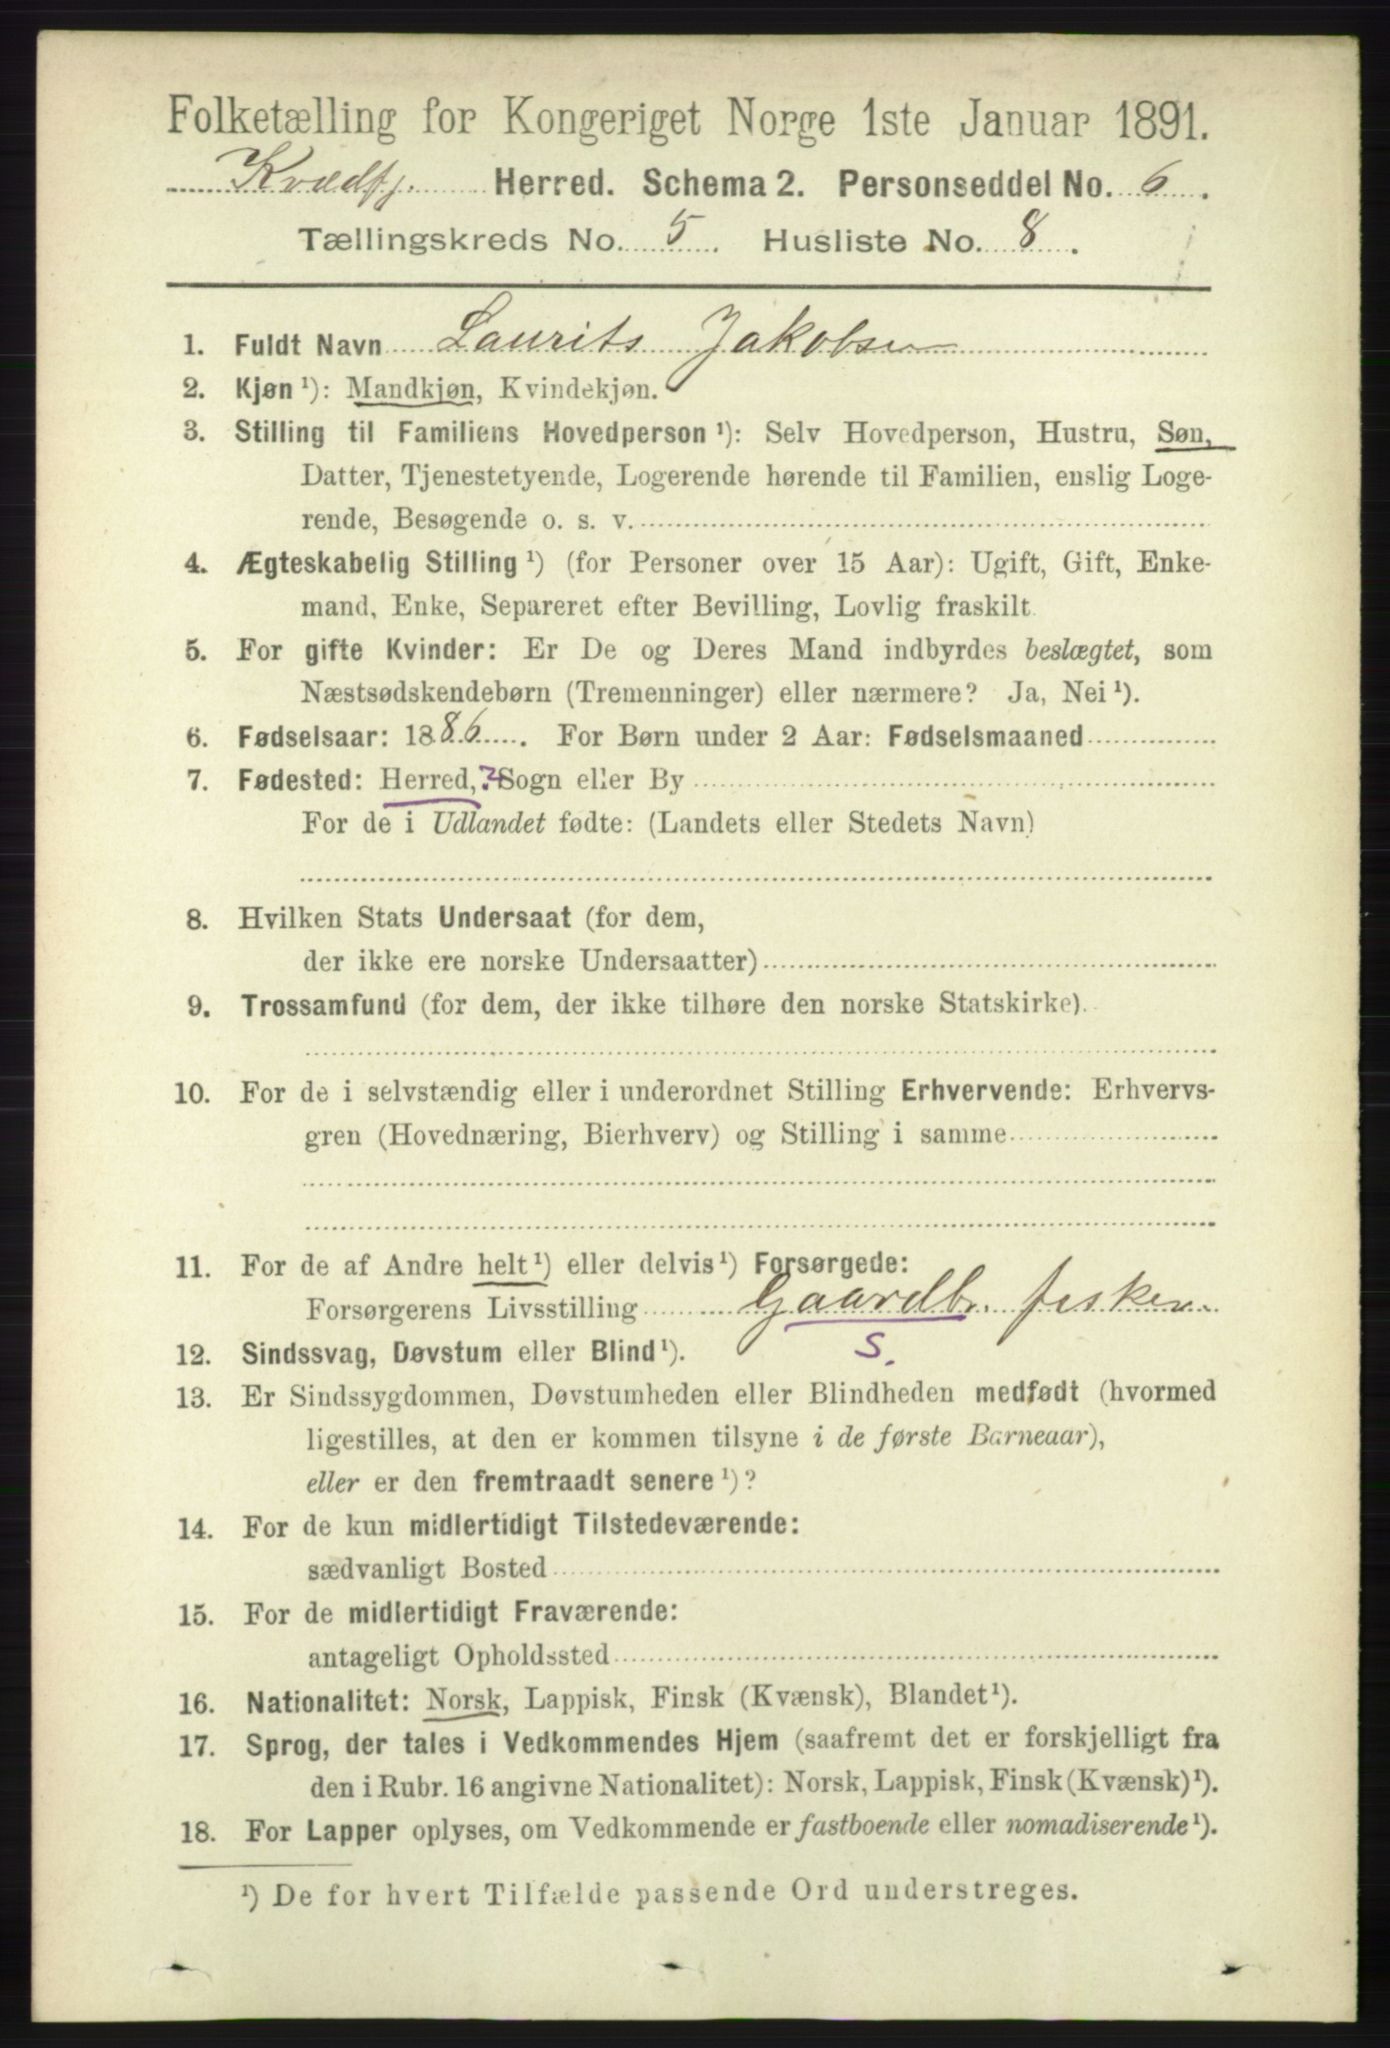 Folketælling for Kongeriget Norge 1ste Januar 1891.
Kvædfj. Herred. Schema 2. Personseddel No. 6.
Tællingskreds No. 5. Husliste No. 8.
1. Fuldt Navn Laurits Jakobsen
2. Kjøn ¹): Mandkjøn, Kvindekjøn.
3. Stilling til Familiens Hovedperson ¹): Selv Hovedperson, Hustru, Søn,
Datter, Tjenestetyende, Logerende hørende til Familien, enslig Loge-
rende, Besøgende o. s. v.
4. Ægteskabelig Stilling ¹) (for Personer over 15 Aar): Ugift, Gift, Enke-
mand, Enke, Separeret efter Bevilling, Lovlig fraskilt
5. For gifte Kvinder: Er De og Deres Mand indbyrdes beslægtet, som
Næstsødskendebørn (Tremenninger) eller nærmere? Ja, Nei ¹).
6. Fødselsaar: 1886. For Børn under 2 Aar: Fødselsmaaned
7. Fødested: Herred, ? Sogn eller By
For de i Udlandet fødte: (Landets eller Stedets Navn)
8. Hvilken Stats Undersaat (for dem,
der ikke ere norske Undersaatter)
9. Trossamfund (for dem, der ikke tilhøre den norske Statskirke)
10. For de i selvstændig eller i underordnet Stilling Erhvervende: Erhvervs-
gren (Hovednæring, Bierhverv) og Stilling i samme
11. For de af Andre helt ¹) eller delvis ¹) Forsørgede:
Forsørgerens Livsstilling Gaardbr. fisker
12. Sindssvag, Døvstum eller Blind ¹). S.
13. Er Sindssygdommen, Døvstumheden eller Blindheden medfødt (hvormed
ligestilles, at den er kommen tilsyne i de første Barneaar),
eller er den fremtraadt senere ¹)?
14. For de kun midlertidigt Tilstedeværende:
sædvanligt Bosted
15. For de midlertidigt Fraværende:
antageligt Opholdssted
16. Nationalitet: Norsk, Lappisk, Finsk (Kvænsk), Blandet ¹).
17. Sprog, der tales i Vedkommendes Hjem (saafremt det er forskjelligt fra
den i Rubr. 16 angivne Nationalitet): Norsk, Lappisk, Finsk (Kvænsk) ¹).
18. For Lapper oplyses, om Vedkommende er fastboende eller nomadiserende ¹).
¹) De for hvert Tilfælde passende Ord understreges.